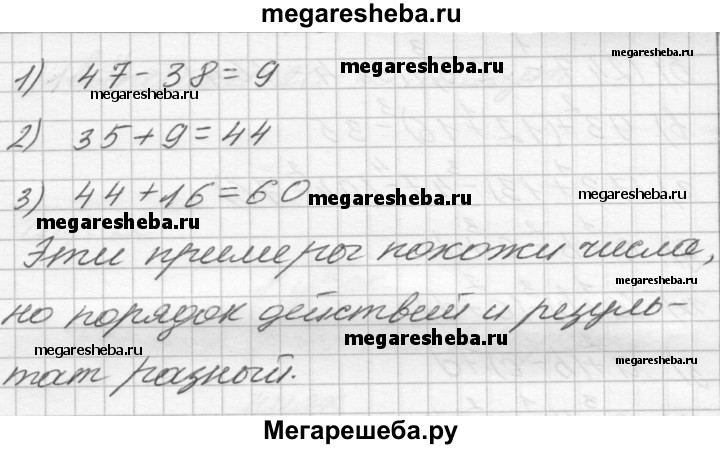 megaresheba.ru
1) 47 - 38 = 9
megaresheba.ru
megaresheba.ru
2) 35 + 9 = 44
3) 44 + 16 = 60
megaresheba.ru
megaresheba.ru
Эти примеры похожи числа,
megaresheba.ru
но порядок действий и резуль-
megaresheba.ru
megaresheba.ru
megaresheba.ru
тат разный.
Мегарешеба.ру